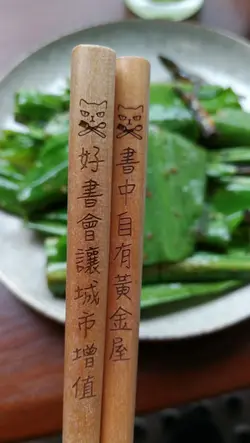 好書會讓城市增值
書中自有黃金屋